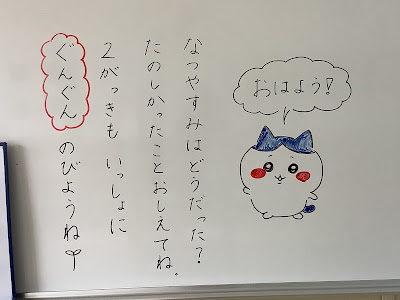 おはよう!
なつやすみはどうだった?
たのしかったことおしえてね.
2がっきも いっしょに
ぐんぐん のびようね